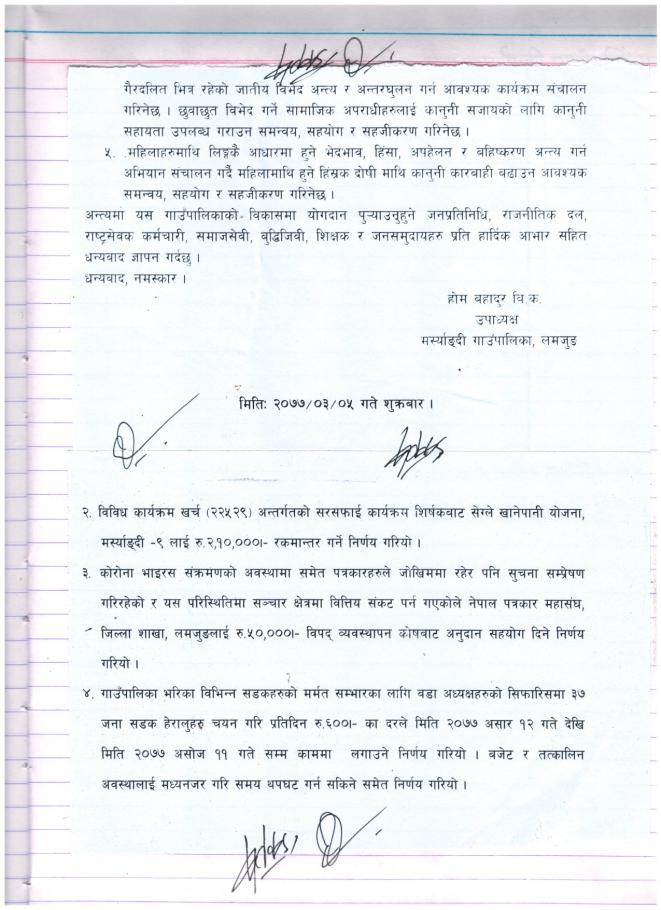 गैरदलित भित्र रहेको जातीय विभेद अन्त्य र अन्तरघुलन गर्न आवश्यक कार्यक्रम संचालन
गरिनेछ । छुवाछुत विभेद गर्ने सामाजिक अपराधीहरुलाई कानुनी सजायको लागि कानुनी
सहायता उपलब्ध गराउन समन्वय, सहयोग र सहजीकरण गरिनेछ ।
५. महिलाहरुमाथि लिङ्गकै आधारमा हुने भेदभाव, हिंसा, अपहेलन र बहिष्करण अन्त्य गर्न
अभियान संचालन गर्दै महिलामाथि हुने हिंस्रक दोषी माथि कानुनी कारवाही बढाउन आवश्यक
समन्वय, सहयोग र सहजीकरण गरिनेछ ।
अन्त्यमा यस गाउँपालिकाको विकासमा योगदान पुऱ्याउनुहुने जनप्रतिनिधि, राजनीतिक दल,
राष्ट्रसेवक कर्मचारी, समाजसेवी, बुद्धिजिवी, शिक्षक र जनसमुदायहरु प्रति हार्दिक आभार सहित
धन्यवाद ज्ञापन गर्दछु ।
धन्यवाद, नमस्कार ।
होम बहादुर वि.क.
उपाध्यक्ष
मर्स्याङ्दी गाउँपालिका, लमजुङ
मिति: २०७७/०३/०५ गते शुक्रबार ।
२. विविध कार्यक्रम खर्च (२२५२९) अन्तर्गतको सरसफाई कार्यक्रम शिर्षकबाट सेग्ले खानेपानी योजना,
मर्स्याङ्दी -९ लाई रु.२,१०,०००।- रकमान्तर गर्ने निर्णय गरियो ।
३. कोरोना भाइरस संक्रमणको अवस्थामा समेत पत्रकारहरुले जोखिममा रहेर पनि सुचना सम्प्रेषण
गरिरहेको र यस परिस्थितिमा सञ्चार क्षेत्रमा वित्तिय संकट पर्न गएकोले नेपाल पत्रकार महासंघ,
जिल्ला शाखा, लमजुङलाई रु.५०,०००।- विपद् व्यवस्थापन कोषबाट अनुदान सहयोग दिने निर्णय
गरियो ।
४. गाउँपालिका भरिका विभिन्न सडकहरुको मर्मत सम्भारका लागि वडा अध्यक्षहरुको सिफारिसमा ३७
जना सडक हेरालुहरु चयन गरि प्रतिदिन रु.६००।- का दरले मिति २०७७ असार १२ गते देखि
मिति २०७७ असोज ११ गते सम्म काममा लगाउने निर्णय गरियो । बजेट र तत्कालिन
अवस्थालाई मध्यनजर गरि समय थपघट गर्न सकिने समेत निर्णय गरियो ।